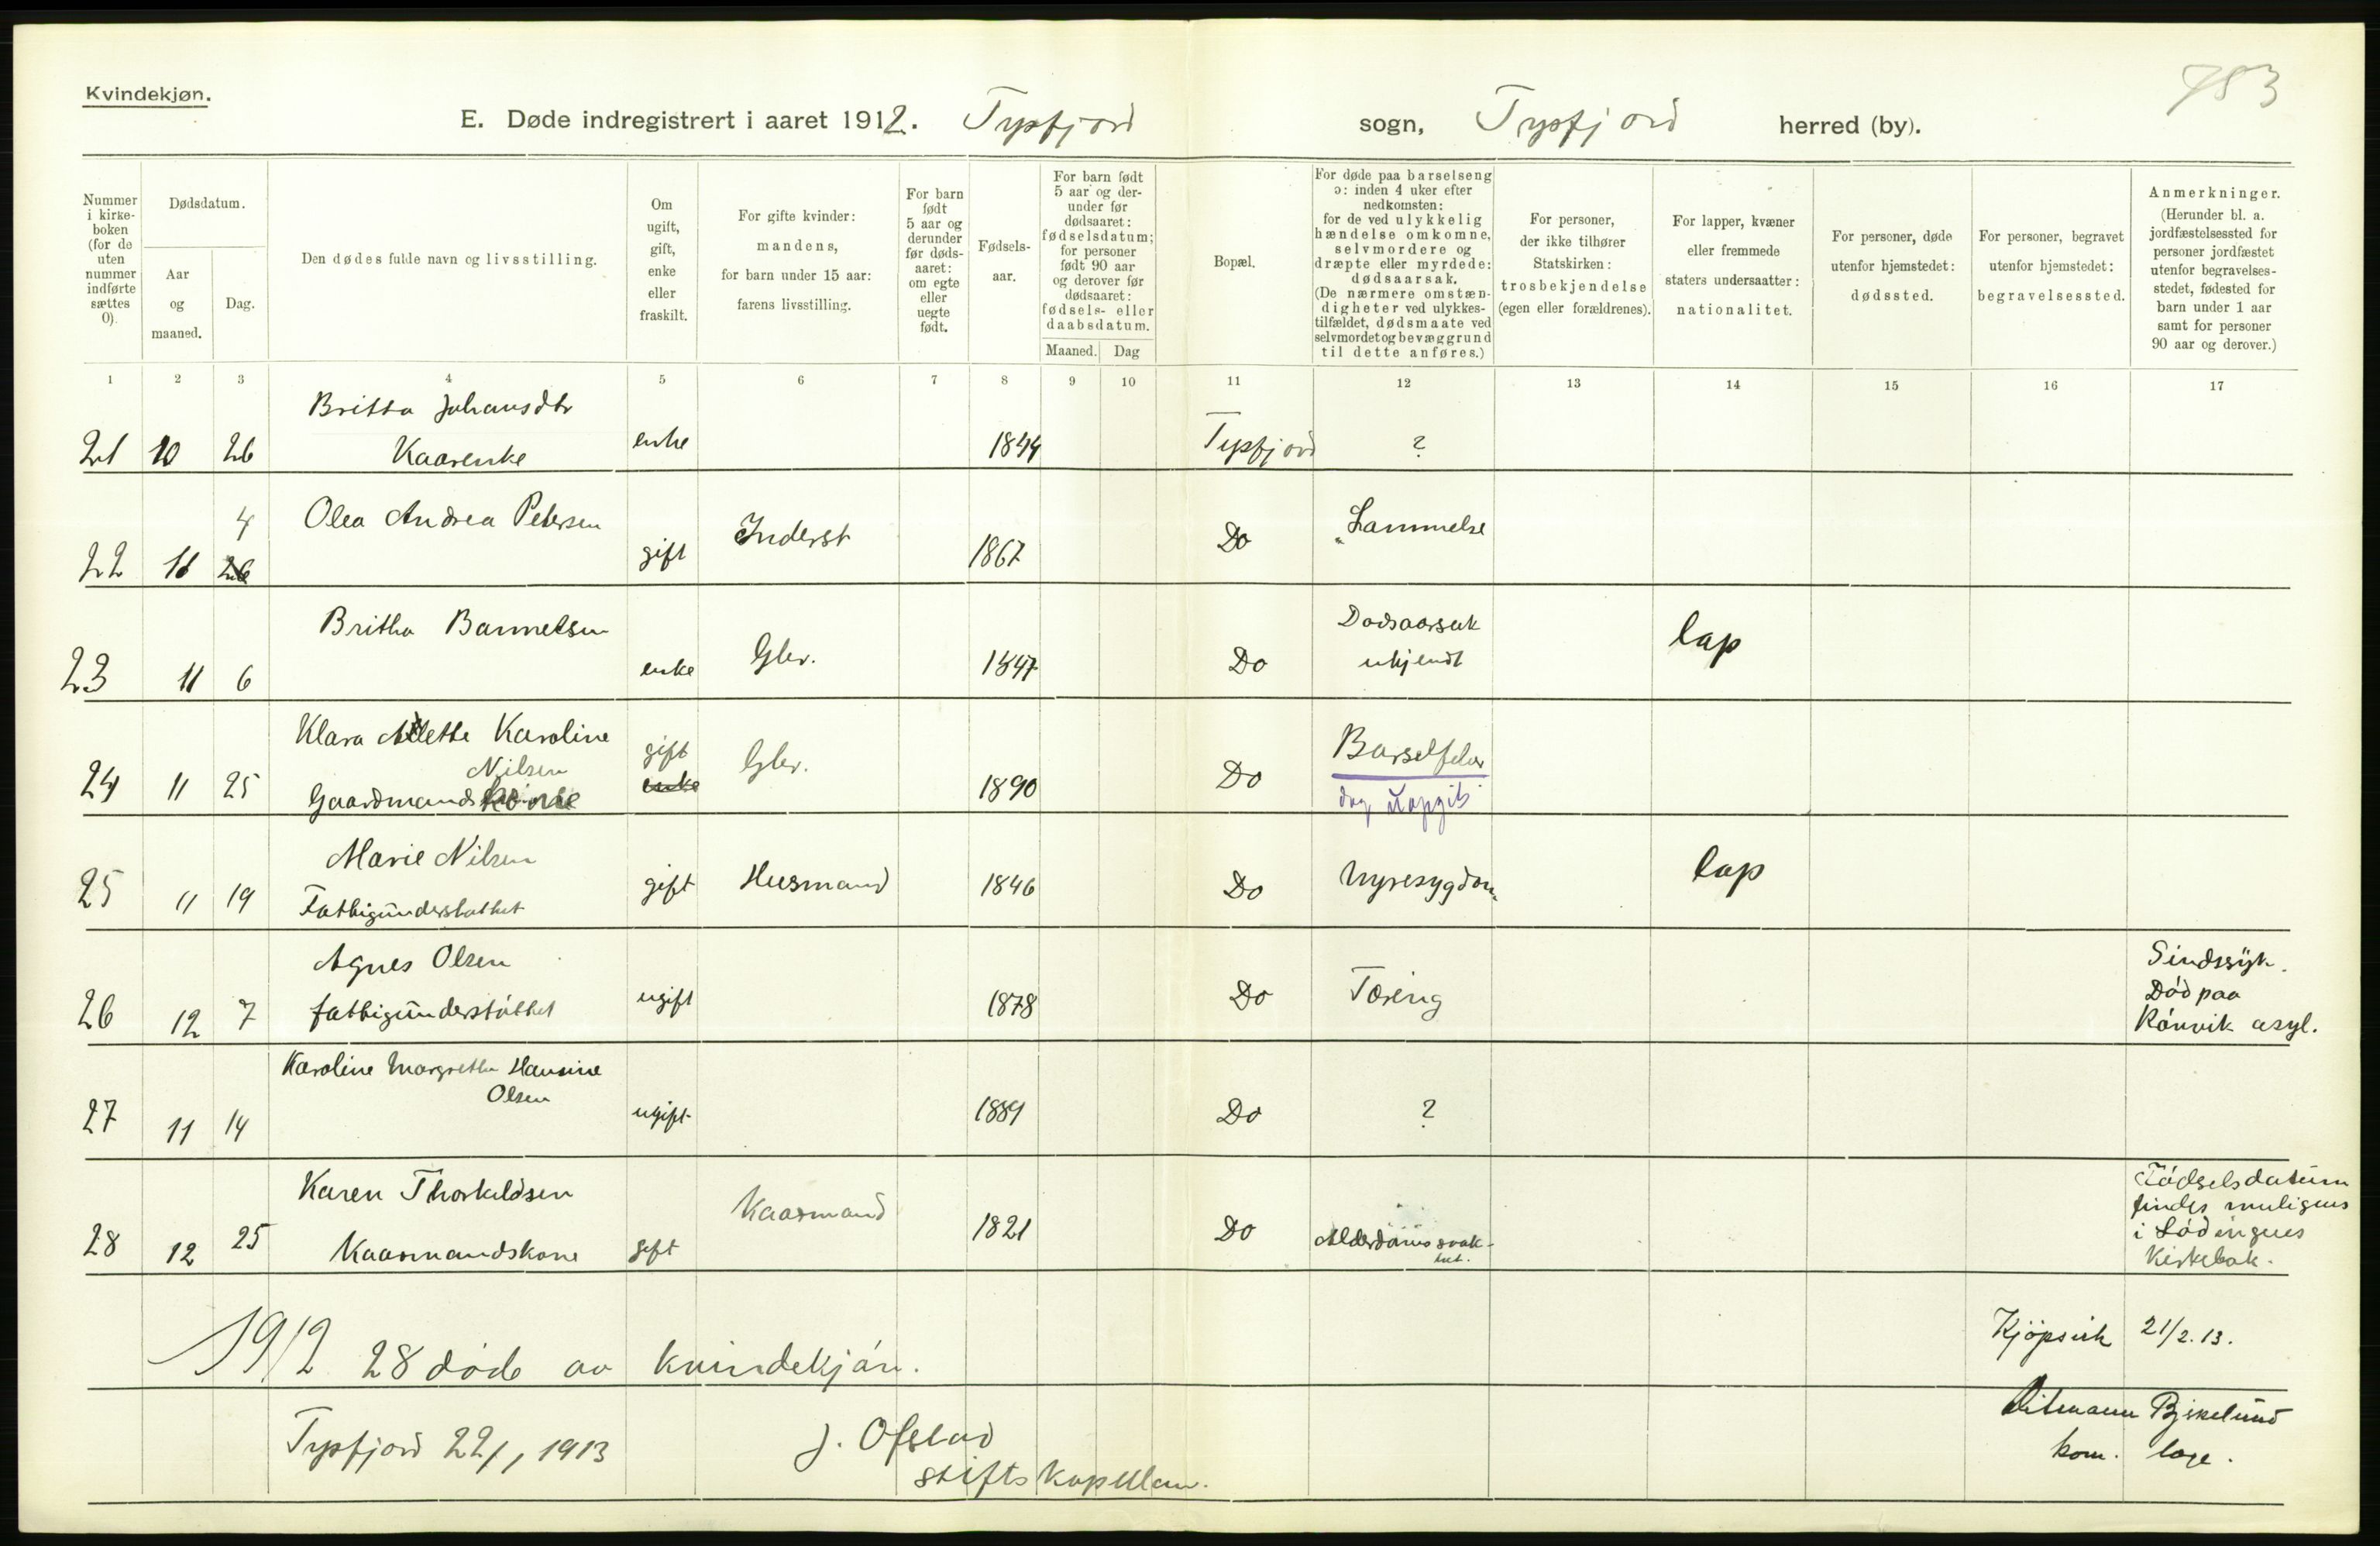 Kvindekjøn.
783
E. Døde indregistrert i aaret 1912. Tysfjord sogn, Tysfjord herred (by).
Nummer i kirke-boken (for de uten nummer indførte sættes 0).
Dødsdatum.
Aar og maaned.
Dag.
Den dødes fulde navn og livsstilling.
Om ugift, gift, enke eller fraskilt.
For gifte kvinder: mandens, for barn under 15 aar: farens livsstilling.
For barn født 5 aar og derunder før døds-aaret: om egte eller uegte født.
Fødsels-aar.
For barn født 5 aar og der-under før dødsaaret: fødselsdatum; for personer født 90 aar og derover før dødsaaret: fødsels- eller daabsdatum.
Maaned. Dag
Bopæl.
For døde paa barselseng ɔ: inden 4 uker efter nedkomsten: for de ved ulykkelig hændelse omkomne, selvmordere og dræpte eller myrdede: dødsaarsak. (De nærmere omstæn-digheter ved ulykkes-tilfældet, dødsmaate ved selvmordet og bevæggrund til dette anføres.)
For personer, der ikke tilhører Statskirken: trosbekjendelse (egen eller forældrenes).
For lapper, kvæner eller fremmede staters undersaatter: nationalitet.
For personer, døde utenfor hjemstedet: dødssted.
For personer, begravet utenfor hjemstedet: begravelsessted.
Anmerkninger. (Herunder bl. a. jordfæstelsessted for personer jordfæstet utenfor begravelses-stedet, fødested for barn under 1 aar samt for personer 90 aar og derover.)
1 2 3 4 5 6 7 8 9 10 11 12 13 14 15 16 17
Britta Johansdtr
21 10 26 Kaarenke enke 1844 Tysfjord ?
4 Olea Andrea Petersen
22 11 26 gift Inderst 1867 Do Lammelse
Britha Barnelsen Dødsaarsak
23 11 6 enke Gbr. 1847 Do ukjendt lap
Klara Mette Karoline
Nilsen
24 11 25 Gaardmandskone gift enke Gbr. 1890 Do Barselfeber
dag uopgit
Marie Nilsen
25 11 19 Fattigunderstøttet gift Husmand 1846 Do Nyresygdom lap
Agnes Olsen
26 12 7 fattigunderstøttet ugift 1878 Do Tæring Sindssyk.
Död paa
Rönvik asyl.
Karoline Margrethe Hansine
Olsen
27 11 14 ugift 1889 Do ?
Karen Thorkildsen
28 12 25 Kaarmandskone gift Kaarmand 1821 Do Alderdoms svak-
het.
Födselsdatum
findes muligens
i Lödingens
Kirkebok.
1912 28 döde av kvindekjön.
Kjöpsvik 21/2.13.
Tysfjord 22/1 1913 J. Ofstad
stiftskapellan.
Ditmann Bjekelund
kom. læge.